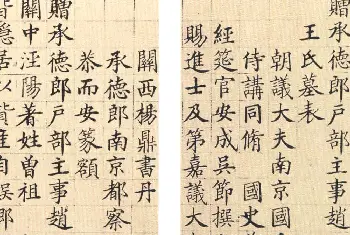 王氏墓表
朝議大夫南京國
侍講同脩 國史
經筵官安成吳節撰
賜進士及第嘉議大
關西楊鼎書丹
承德郎南京都察
恭而安篆額
贈承德郎戶部主事趙
關中汪陽著姓曾祖
隱居以